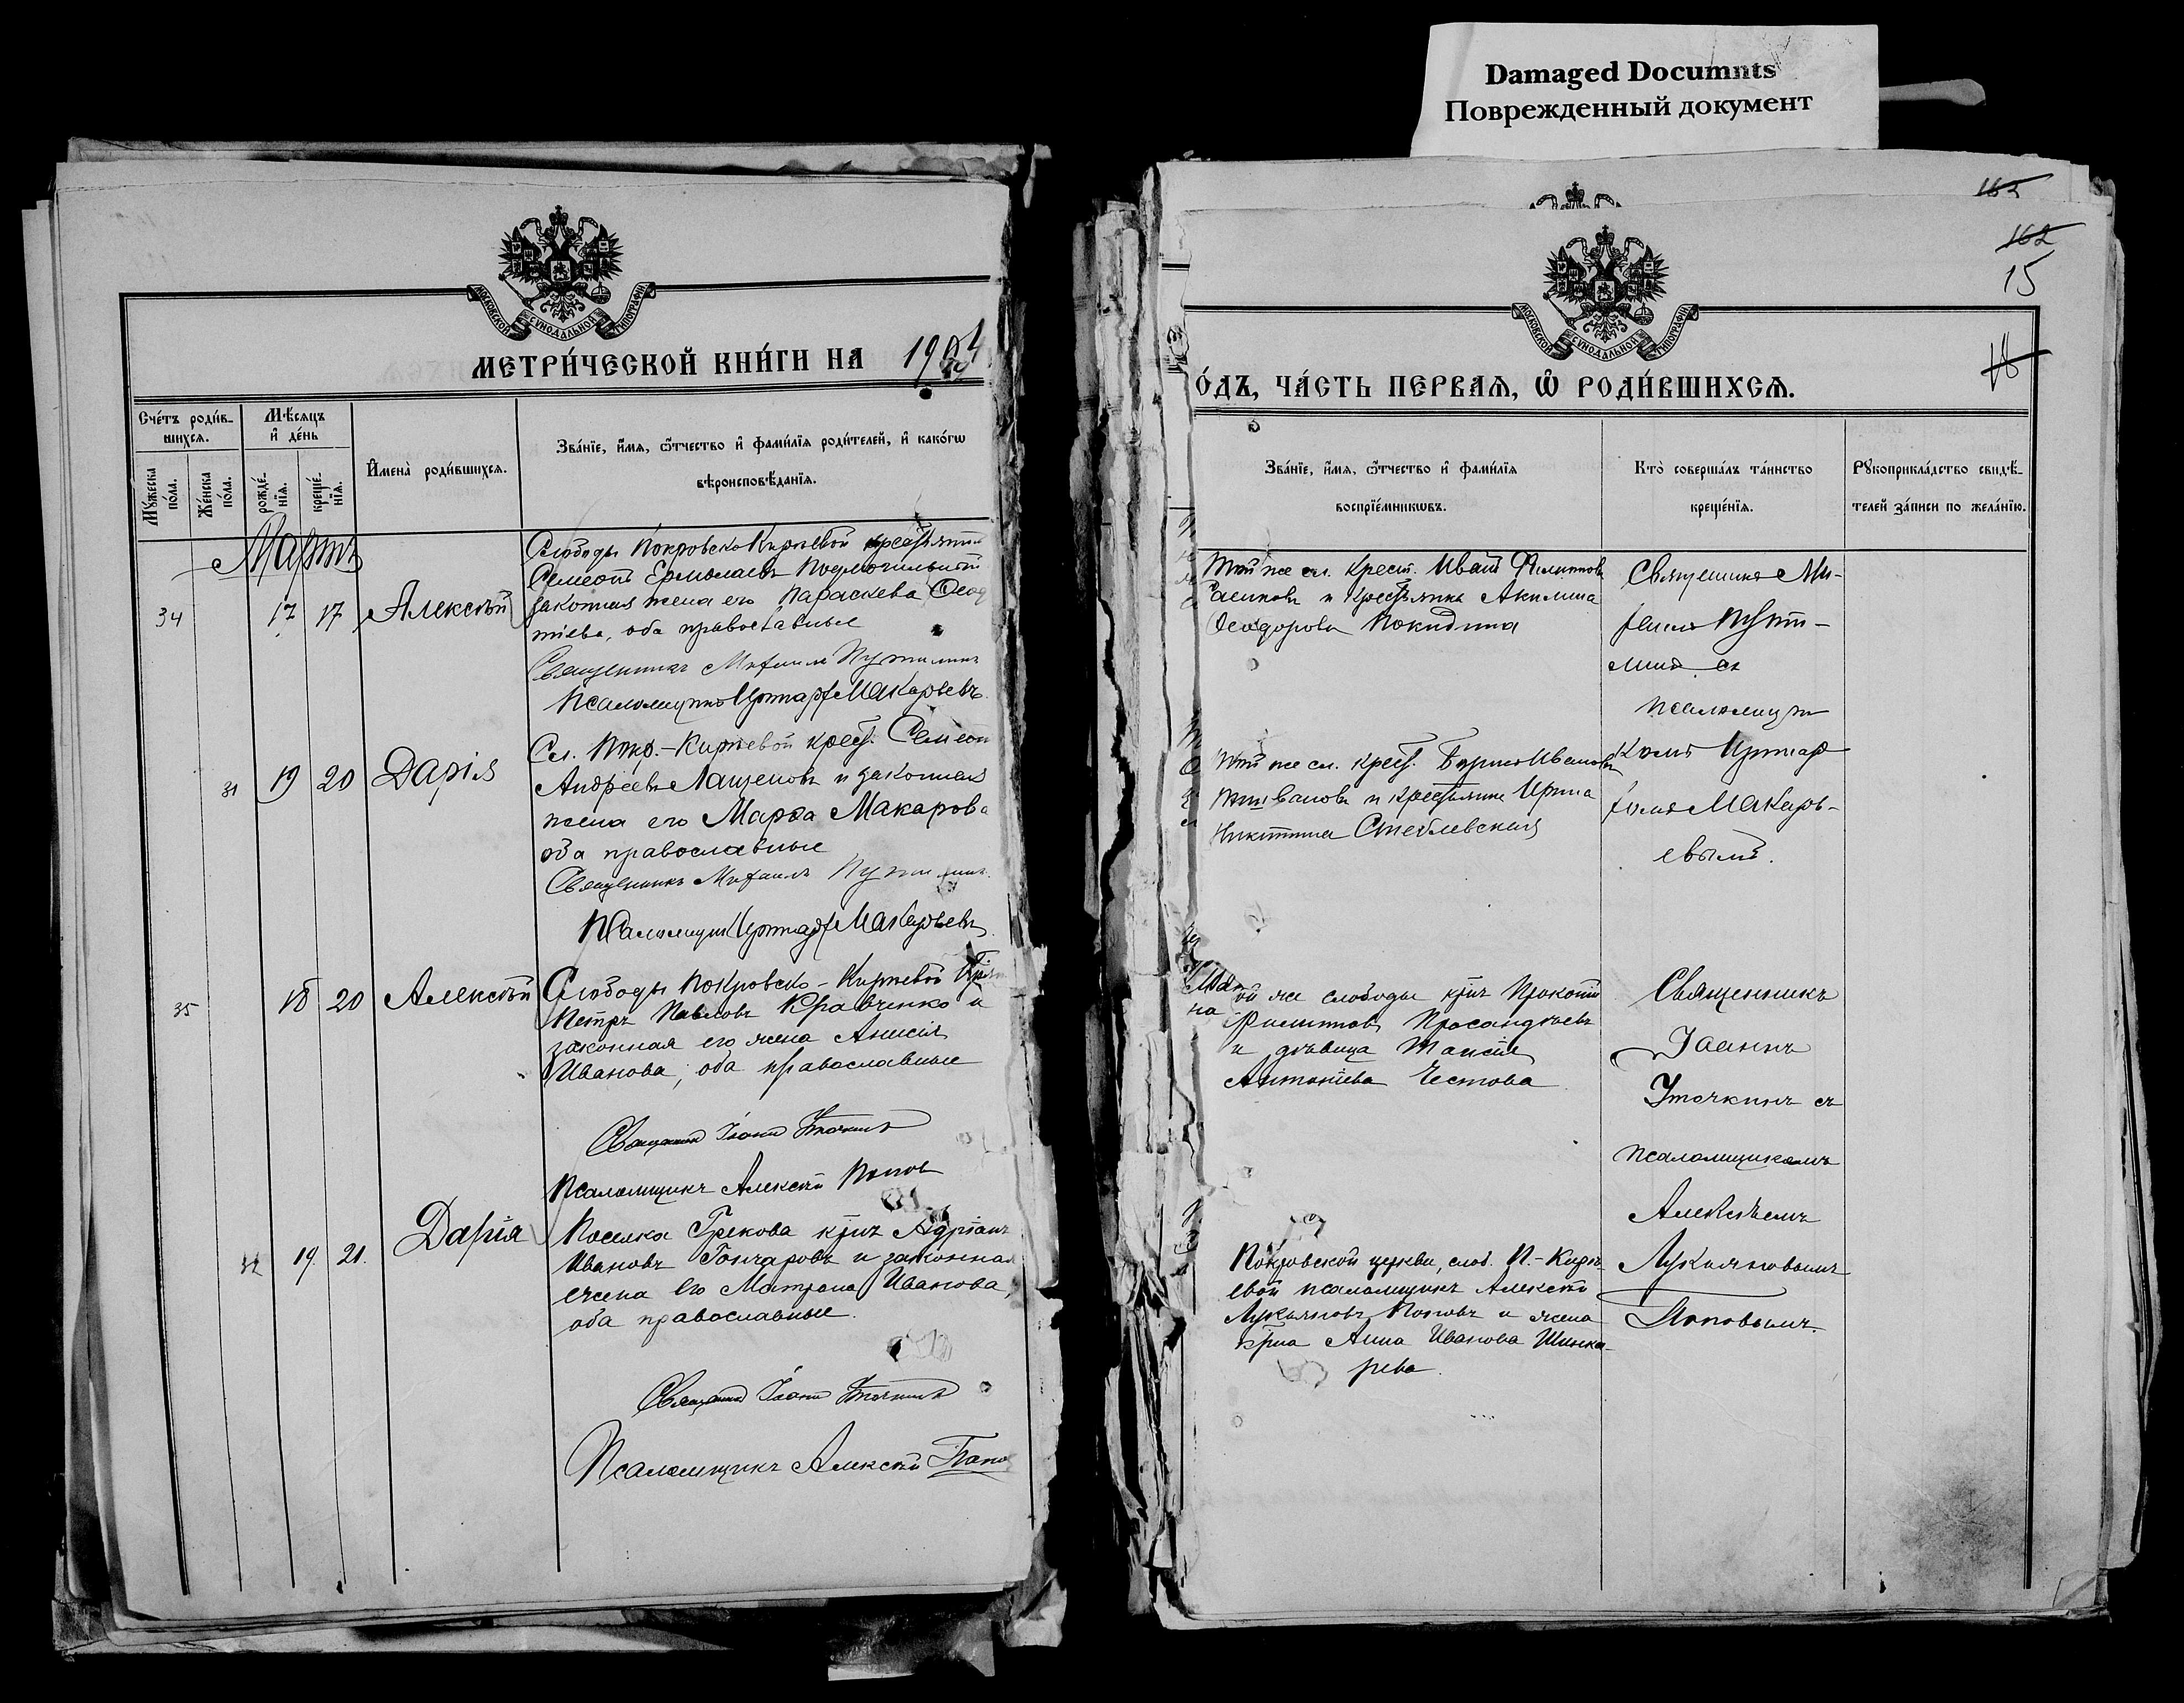 Damaged Documnts
Поврежденный документ
163
162
15
18
МОСКОВСКОЙ СѴНОДАЛЬНОЙ ТИПОГРАФІИ
МЕТРИ́ЧЕСКОЙ КНИ́ГИ НА 1904
Сче́тъ роди́в-
шихся.
Мѣ́сяцъ
и҆ де́нь
И҆мена̀ роди́вшихся.
Зва́нїе, и҆́мя, ѻ҆́тчество и҆ фами́лїя роди́телей, и҆ како́гѡ
вѣроисповѣ́данїя.
Мꙋ́жеска по́ла.
Же́нска по́ла.
рожде́-
нїя.
креще́-
нїя.
Мартъ
34 17 17 Алексѣй
Слободы Покровско Киреевой крестьянин
Семеонъ Ермолаевъ
законная жена его Параскева Ѳеод
тіева, оба православные
Священникъ Михаилъ Путилинъ
Псаломщикъ Иринархъ Макарьевъ
31 19 20 Дарія
Сл. Покр.-Киреевой крест. Семеонъ
Андреевъ Лащеновъ и законная
жена его Марѳа Макарова
оба православные
Священникъ Михаилъ Путилинъ
Псаломщикъ Иринархъ Макарьевъ
35 18 20 Алексѣй
Слободы Покровско-Киреевой
Петръ Павловъ Кравченко и
законная его жена Анисія
Иванова, оба православные
Священникъ Іоаннъ Уточкинъ
Псаломщикъ Алексѣй Попов
32 19. 21. Дарія
Поселка Грекова кр҃нъ Адріанъ
Ивановъ Гончаровъ и законная
жена его Матрона Иванова,
оба православные.
Священникъ Іоаннъ Уточкинъ
Псаломщикъ Алексѣй Попо
О́ДЪ, ЧА́СТЬ ПЕ́РВАЯ, Ѡ҆ РОДИ́ВШИХСЯ.
Зва́нїе, и҆́мя, ѻ҆́тчество и҆ фами́лїя
воспрїе́мникѡвъ.
Кто̀ соверша́лъ та́инство
креще́нїя.
Рꙋкоприкла́дство свидѣ́-
телей за́писи по жела́нїю.
Той же сл. крест. Иванъ Филиппов
и крестьянка Акилина
Ѳеодорова Покидина
Священникъ Ми-
хаилъ Пути-
линъ съ
псаломщи
комъ Иринар
хомъ Макарь-
евымъ.
Той же сл. крест. Иванов
и крестьянка Ирина
Никитина Стеблевская
ой же слободы кр҃нъ Прокопій
Филипповъ
и дѣвица Таисія
Антоніева Честова
Священникъ
Іоаннъ
Уточкинъ съ
псаломщикомъ
Алексѣемъ
Лукьяновымъ
Поповымъ.
Покровской церкви, слоб. П.-Кире-
евой псаломщикъ Алексѣй
Лукьяновъ Поповъ и жена
Анна Иванова Шинка-
рева.